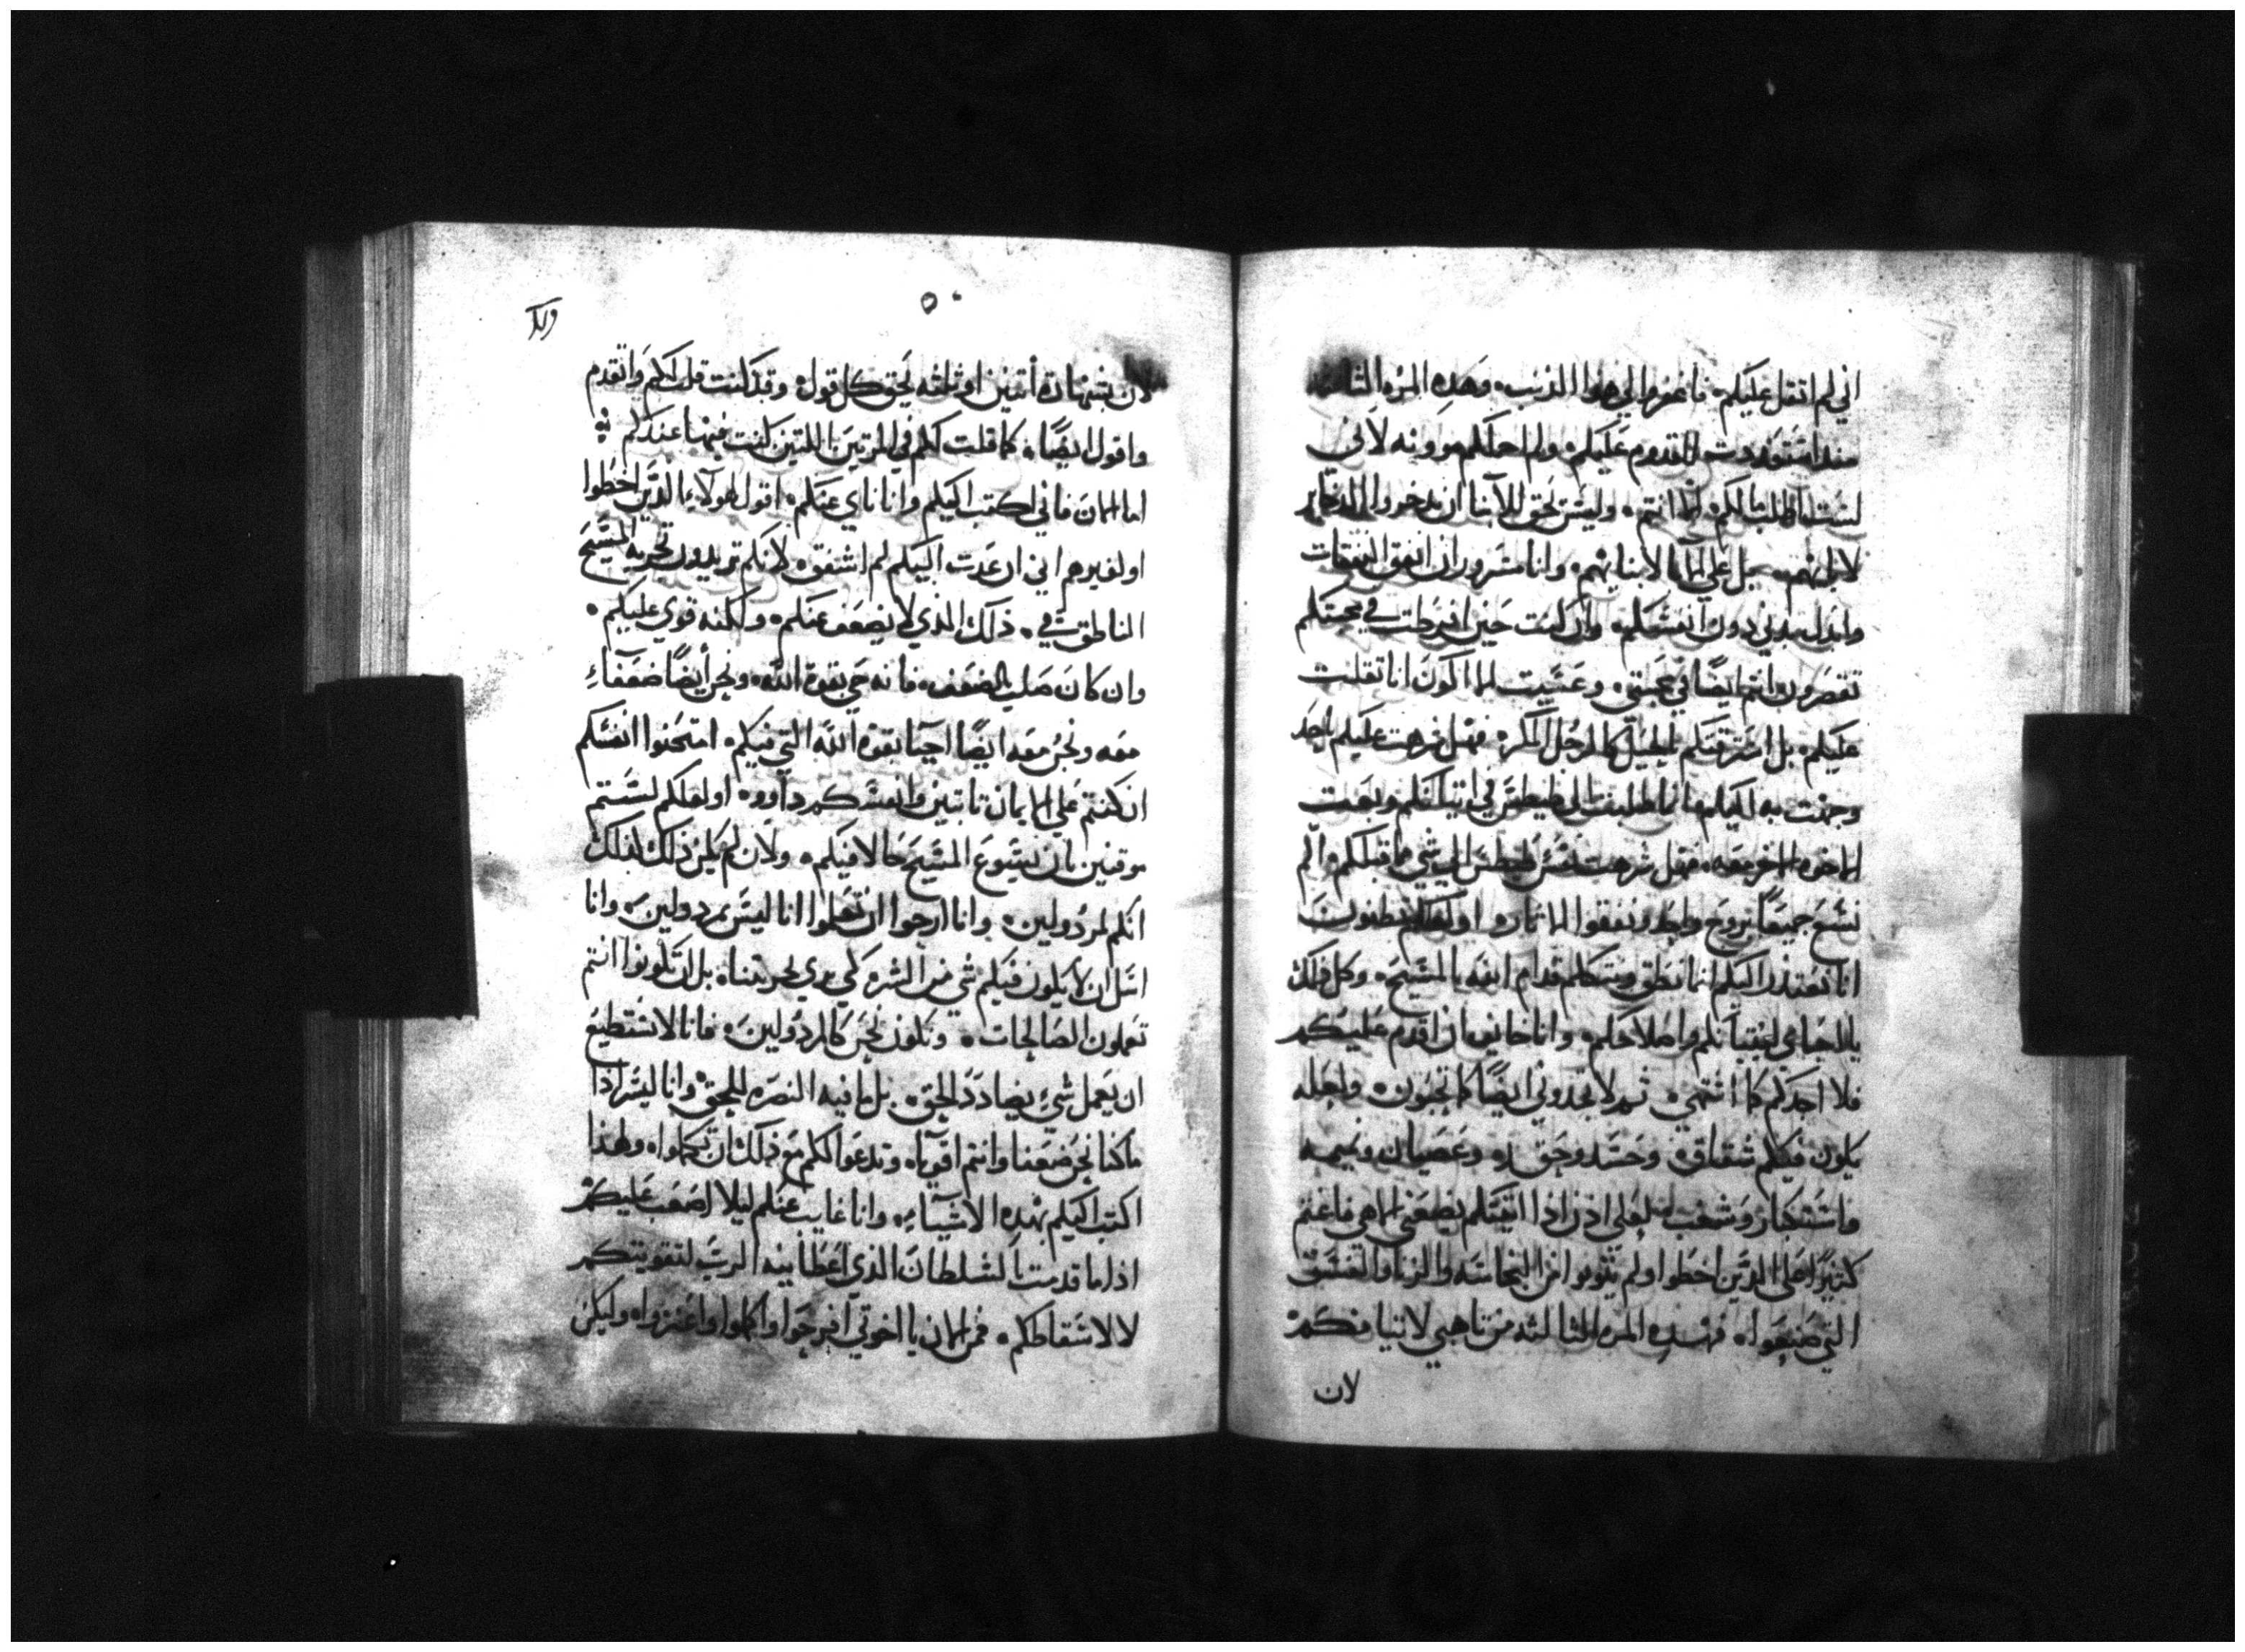 اني لم اتقل عليكم فاغفروا لي هذا الذنب وهذه المره الثالثه
منذ استعددت للقدوم عليكم ولم احملكم موونه لاني
لست اطلب مالكم انما انتم وليس يحق للابنا ان يدخروا الدخاير
لابايهم بل علي الابا لابنايهم وانا مسرور ان انفق النفقات
وابدل بدني دون انفسكم وان كنت حين افرطت في محبتكم
تقصرون انتم ايضًا في محبتي وعسيت الا اكون انا تقلت
عليكم بل استرقتكم بالحيل كالرجل المكر فهل شرهت عليكم باحد
وجهت به اليكم انما طلبت الي طيطس في اتيانكم وبعثت
الاخوه الاخر معه فهل شرهت نفس طيطس الي شي مما قبلكم والم
نسع جميعًا بروح واحد ونقفوا الاثار او لعلكم تظنون
انا نعتذر اليكم انما ننطق ونتكلم قدام الله بالمسيح وكل ذلك
يا احباي لبنيانكم واصلاحكم وانا خايف ان اقدم عليكم
فلا اجدكم كما اشتهي ثم لا تجدوني ايضًا كما تحبون ولعله
يكون فيكم شقاق وحسد وحقد وعصيان ونميمه
واستكبار وشغب لعلي اذن اذا اتيتكم يضعني الاهي فاغتم
كثيرًا علي الدين اخطوا ولم يتوبوا من النجاسه والزنا والفسق
التي صنعوا فهذه المره الثالثه من تاهبي لاتيانكم
لان
٥٠
لان بشهادة أتنين او ثلثه يحق كل قول وقد كنت قلت لكم واتقدم
واقول ايضًا كما قلت لكم في المرتين اللتين كنت فيهما عندكم
اما الان فاني اكتب اليكم وانا ناي عنكم اقول لهولاء الدين اخطوا
او لغيرهم اني ان عدت اليكم لم اشفق لانكم تريدون تجربه المسيح
الناطق في ذلك الذي لا يضعف عنكم ولكنه قوي عليكم
وان كان صلب بالضعف فانه حي بقوة الله ونحن أيضًا ضعفاء
معه ونحن معه ايضًا احيا بقوة الله التي فيكم امتحنوا انفسكم
ان كنتم علي الايمان تابتين وانفسكم داووه او لعلكم لستم
موقنين بان يسوع المسيح حالا فيكم ولان لم يكن ذلك لذلك
انكم لمردولين وانا ارجوا ان تعلموا انا ليس بمردولين وانا
اسل ان لا يكون فيكم شي من الشر كي يري لحربتنا بل ان تكونوا انتم
تعملون الصالحات ونكون نحن كالمردولين فانا لا نستطيع
ان نعمل شيء يضادد الحق بل ما فيه النصره للحق وانا ليسر اذا
ما كنا نحن ضعفا وانتم اقويا وندعوا لكم مع ذلك ان تكملوا ولهذا
اكتب اليكم بهذه الاشياء وانا غايب عنكم ليلا اصعب عليكم
اذا ما قدمت بالسلطان الذي اعطانيه الرب لتقويتكم
لا لاسقاطكم فمن الان يا اخوتي افرحوا واكملوا واعتزوا وليكن